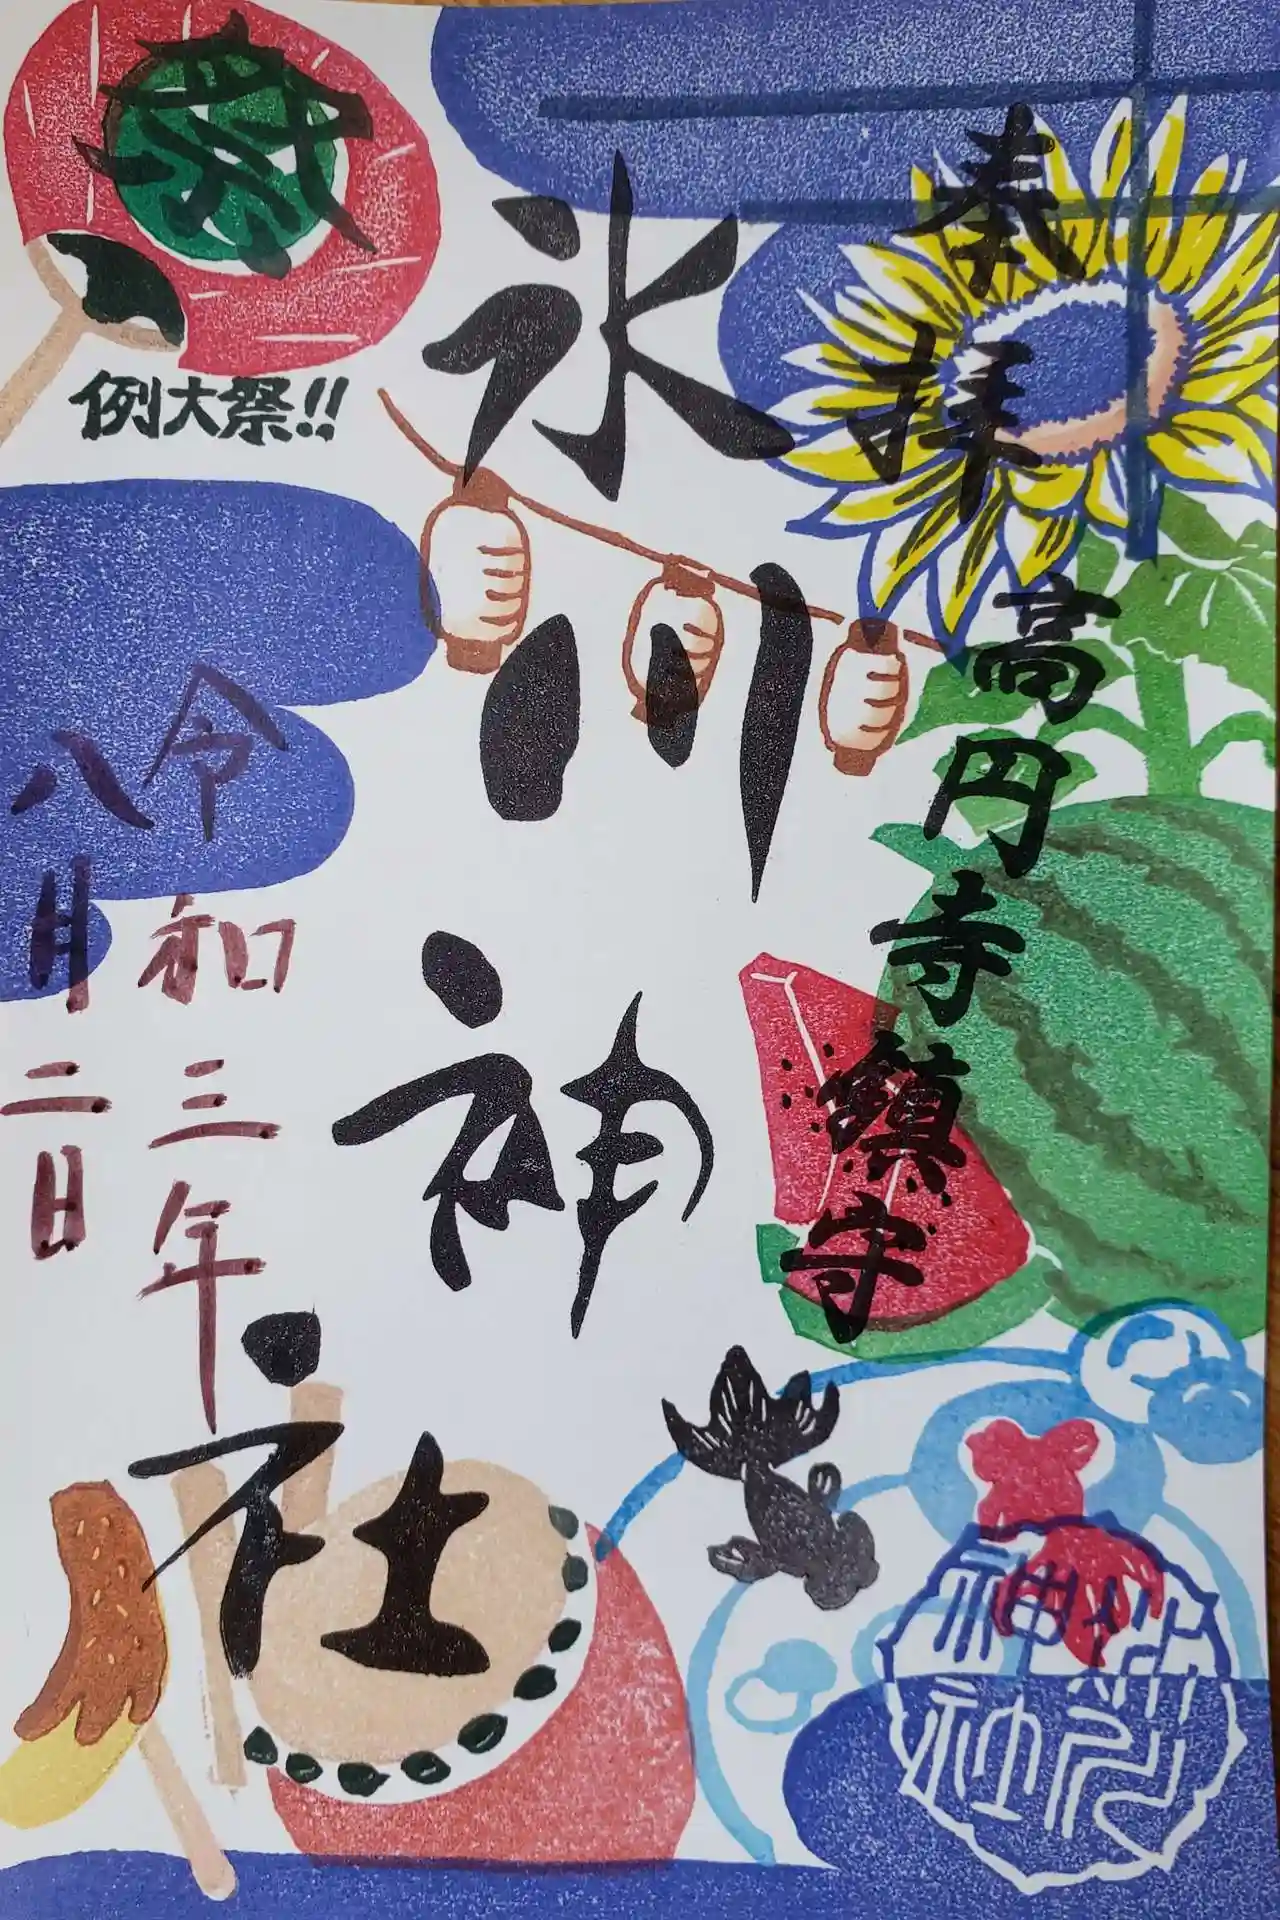 奉拝
高円寺鎮守
氷川神社
令和三年
八月二日
祭
例大祭!!